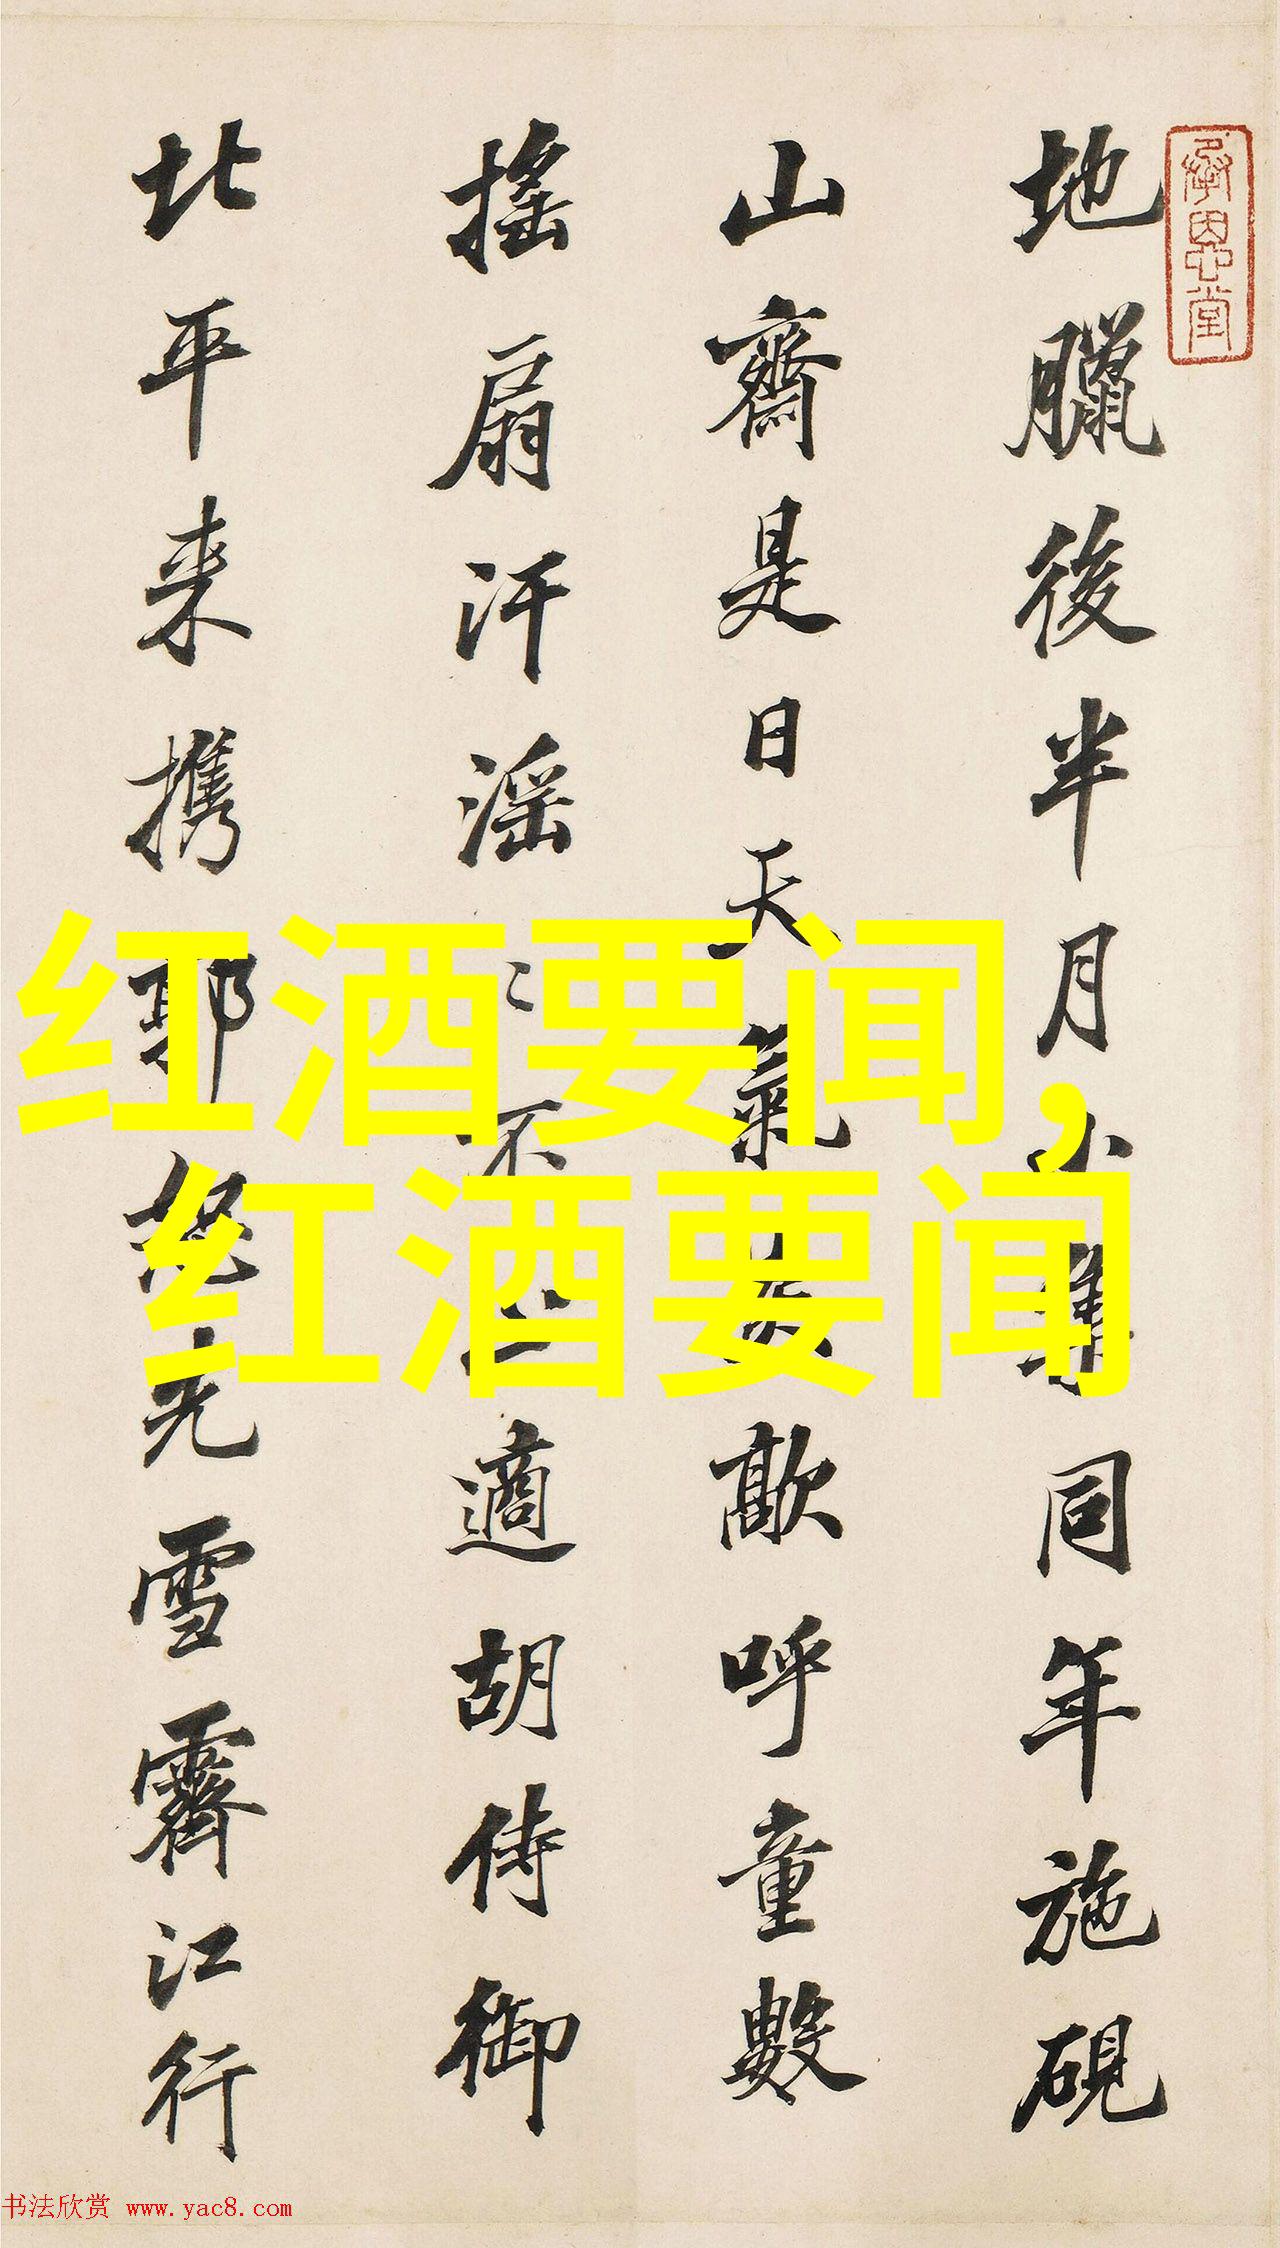 地臘後半月小集同年施硯
山齋是日天氣炎歊呼童數
搖扇汗滛〻不止適胡侍御
北平来攜郭恕先雪霽江行
承恩堂
红酒要闻,
红酒要闻
书法欣赏 www.yac8.com